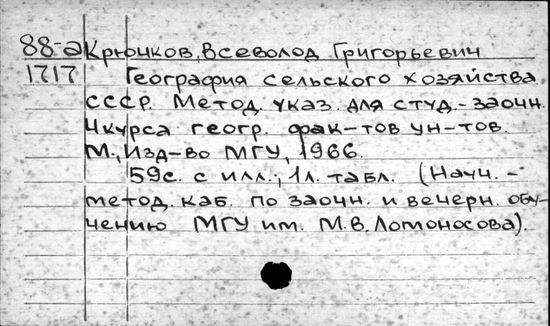 88-а Крючков, Всеволод Григорьевич
1717 География сельского хозяйства
СССР. Метод. указ. для студ.-заочн.
4курса геогр. фак-тов ун-тов.
М., Изд-во МГУ, 1966.
59с. с илл.; 1л. табл. (Науч.-
метод. каб. по заочн. и вечерн. обу-
чению МГУ им. М.В. Ломоносова).